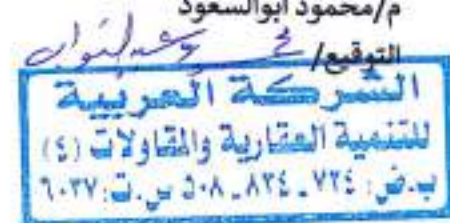 م/محمود أبوالسعود
التوقيع/
الشركة العربية
للتنمية العقارية والمقاولات (٤)
ب.ض: ٧٢٤ _ ٨٣٤ _ ٣٠٨ س.ت: ٦٠٣٧